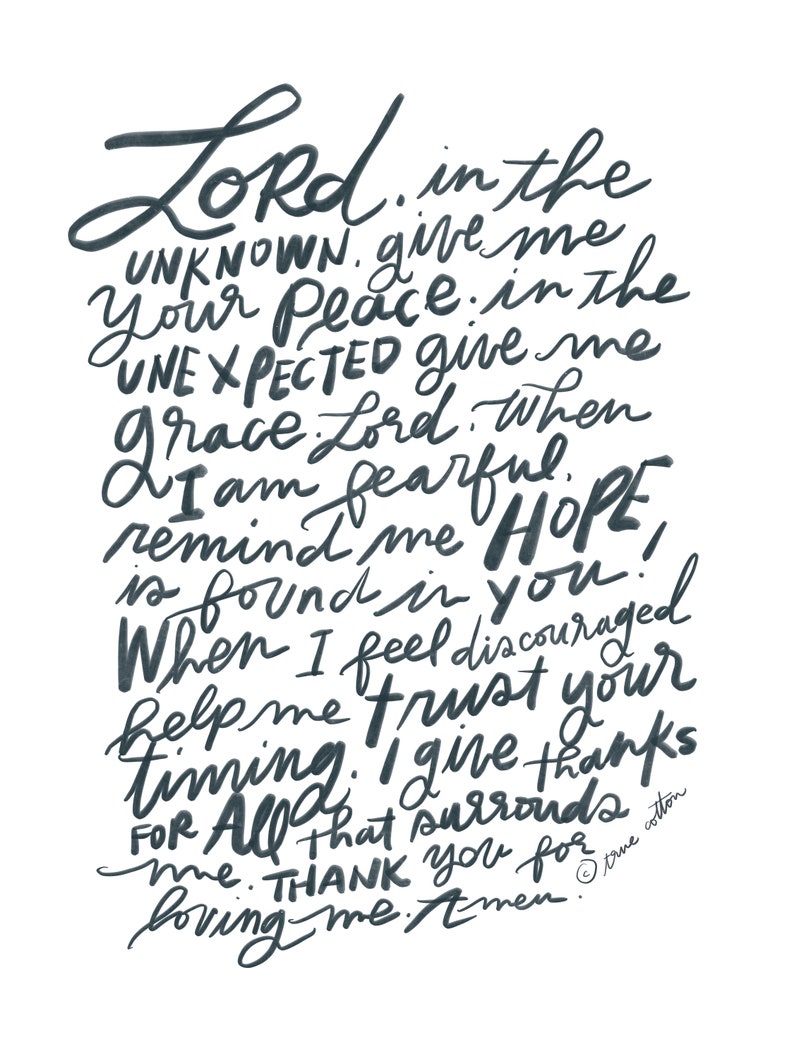 Lord, in the
UNKNOWN, give me
your peace. in the
UNEXPECTED give me
grace. Lord, when
I am fearful,
remind me HOPE
is found in you!
When I feel discouraged
help me trust your
timing. I give thanks
FOR All that surrouds
me. THANK you for
loving me. Amen.
© true cotton